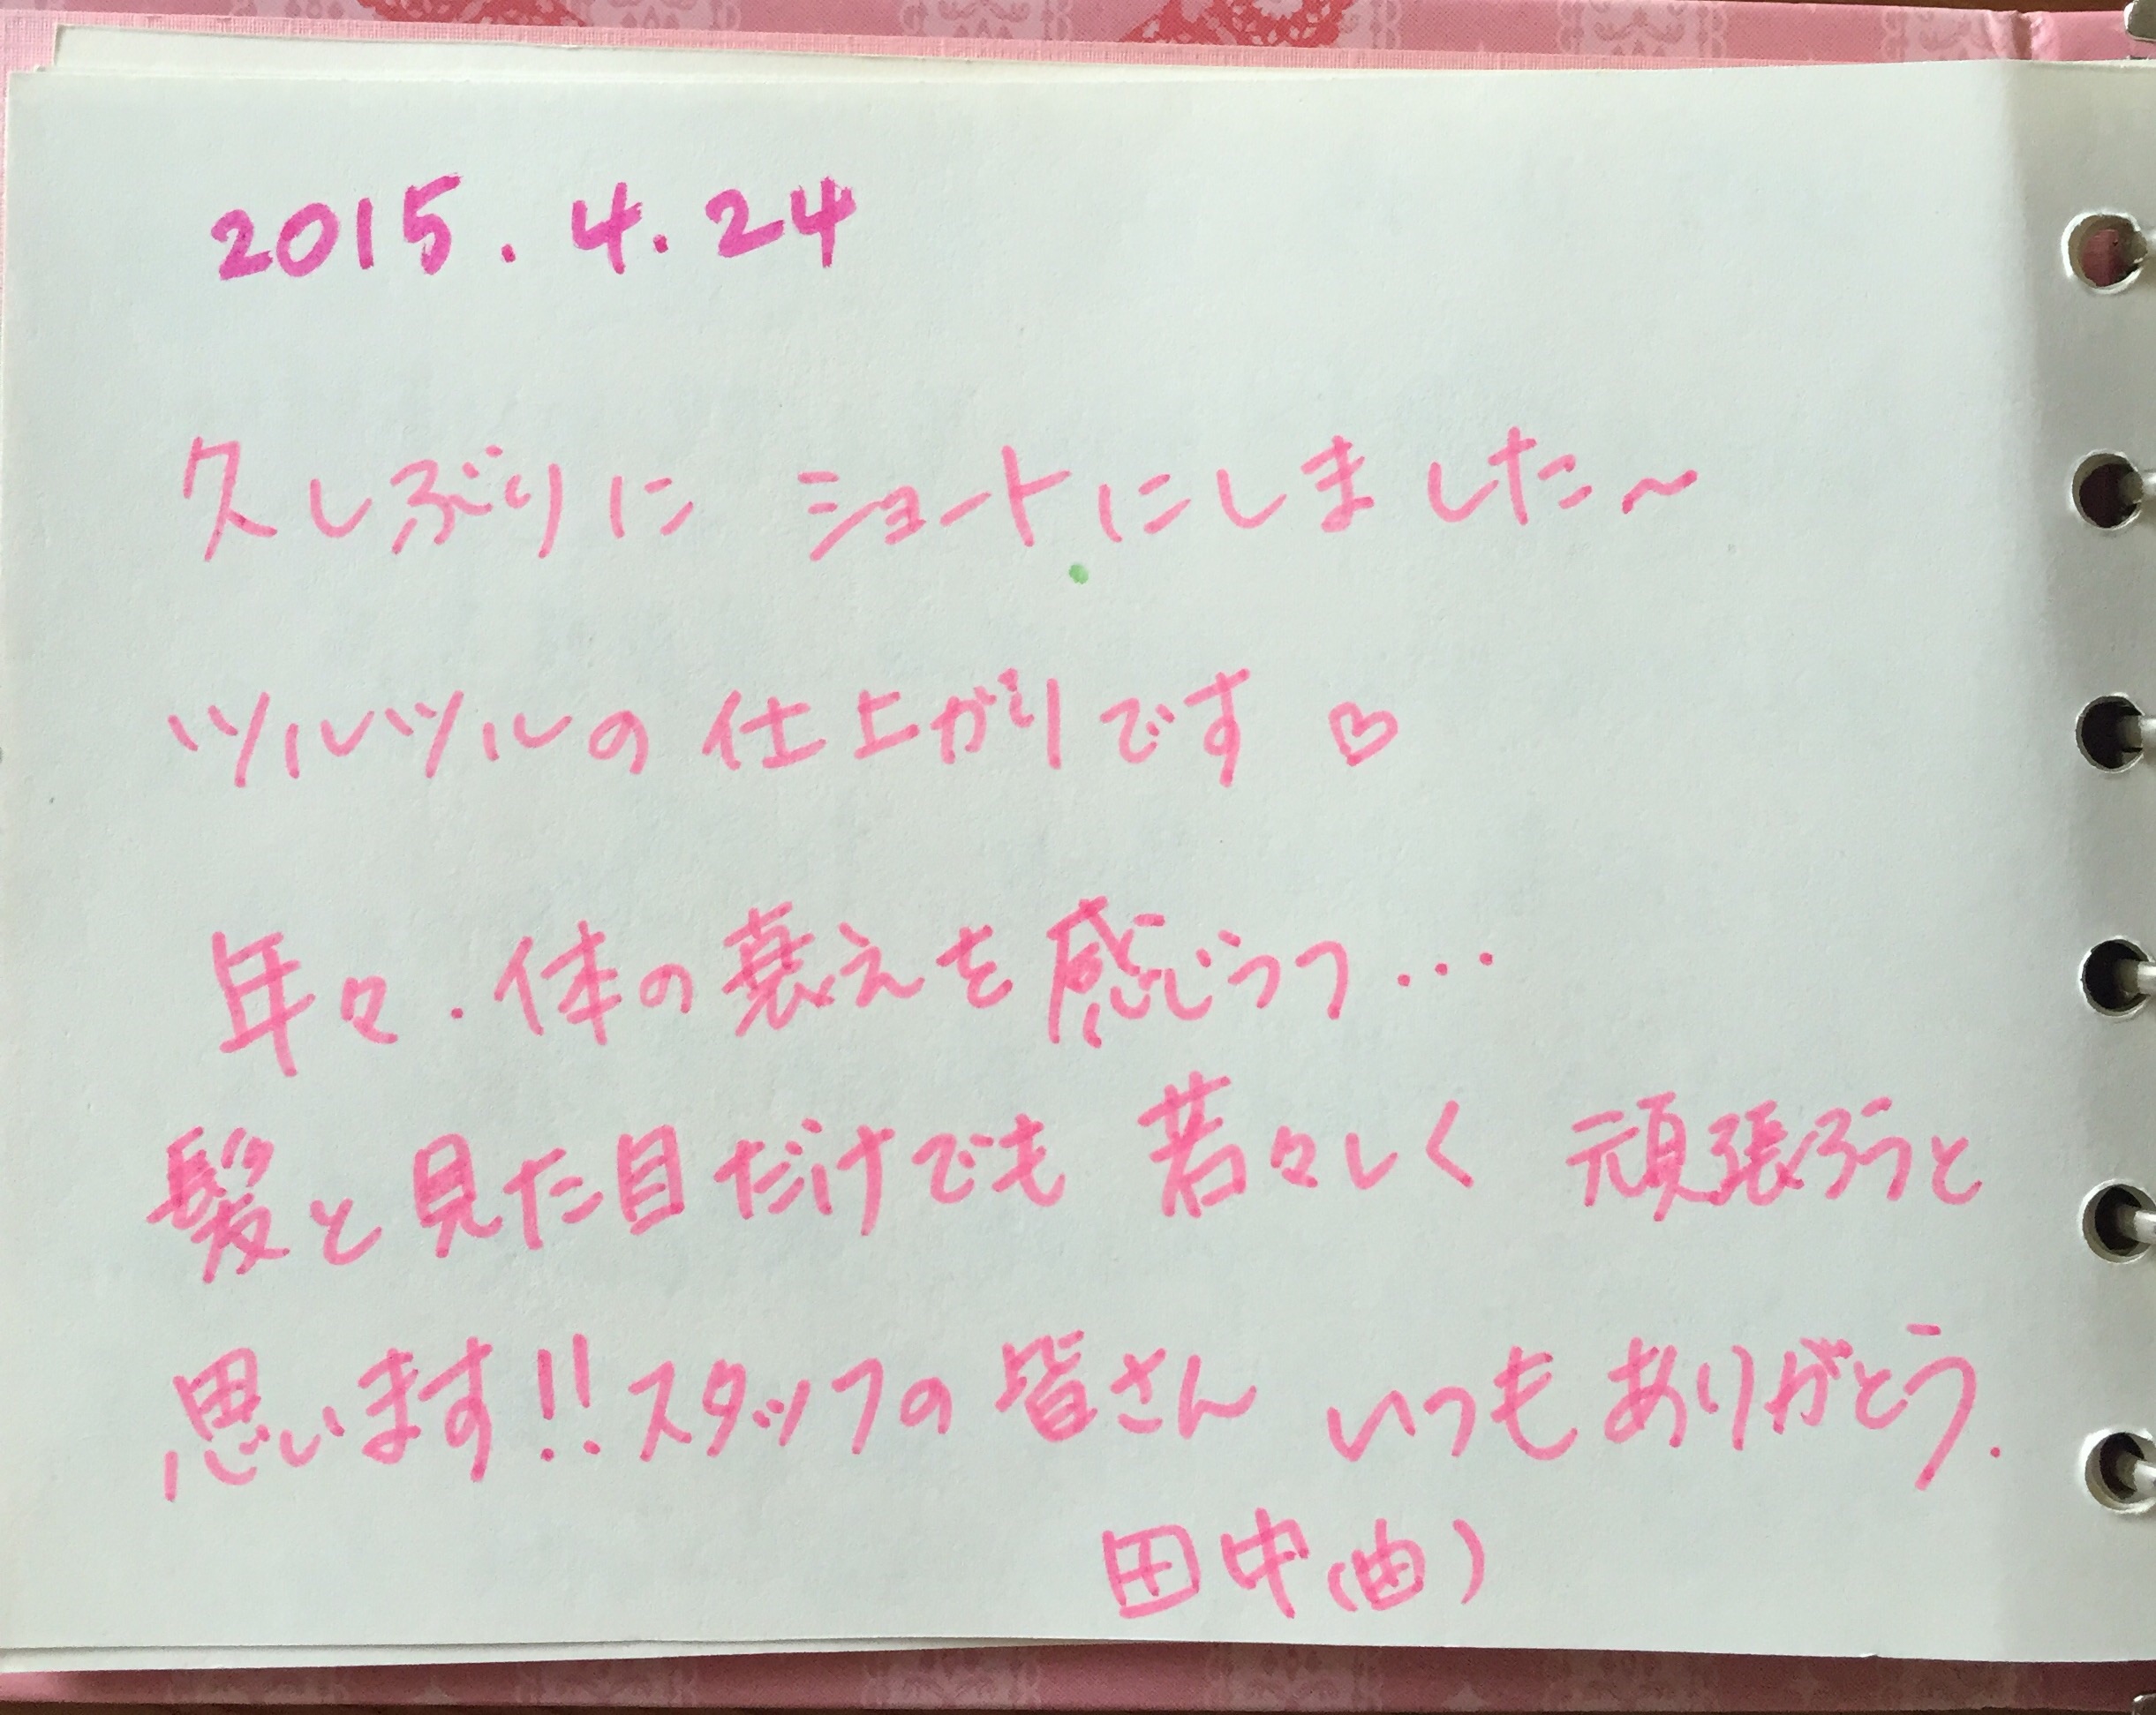 2015.4.24
久しぶりに ショートにしました～
ツルツルの 仕上がりです ♡
年々.体の衰えを感じつつ...
髪と見た目だけでも 若々しく 頑張ろうと
思います!!スタッフの皆さん いつもありがとう.
田中(由)